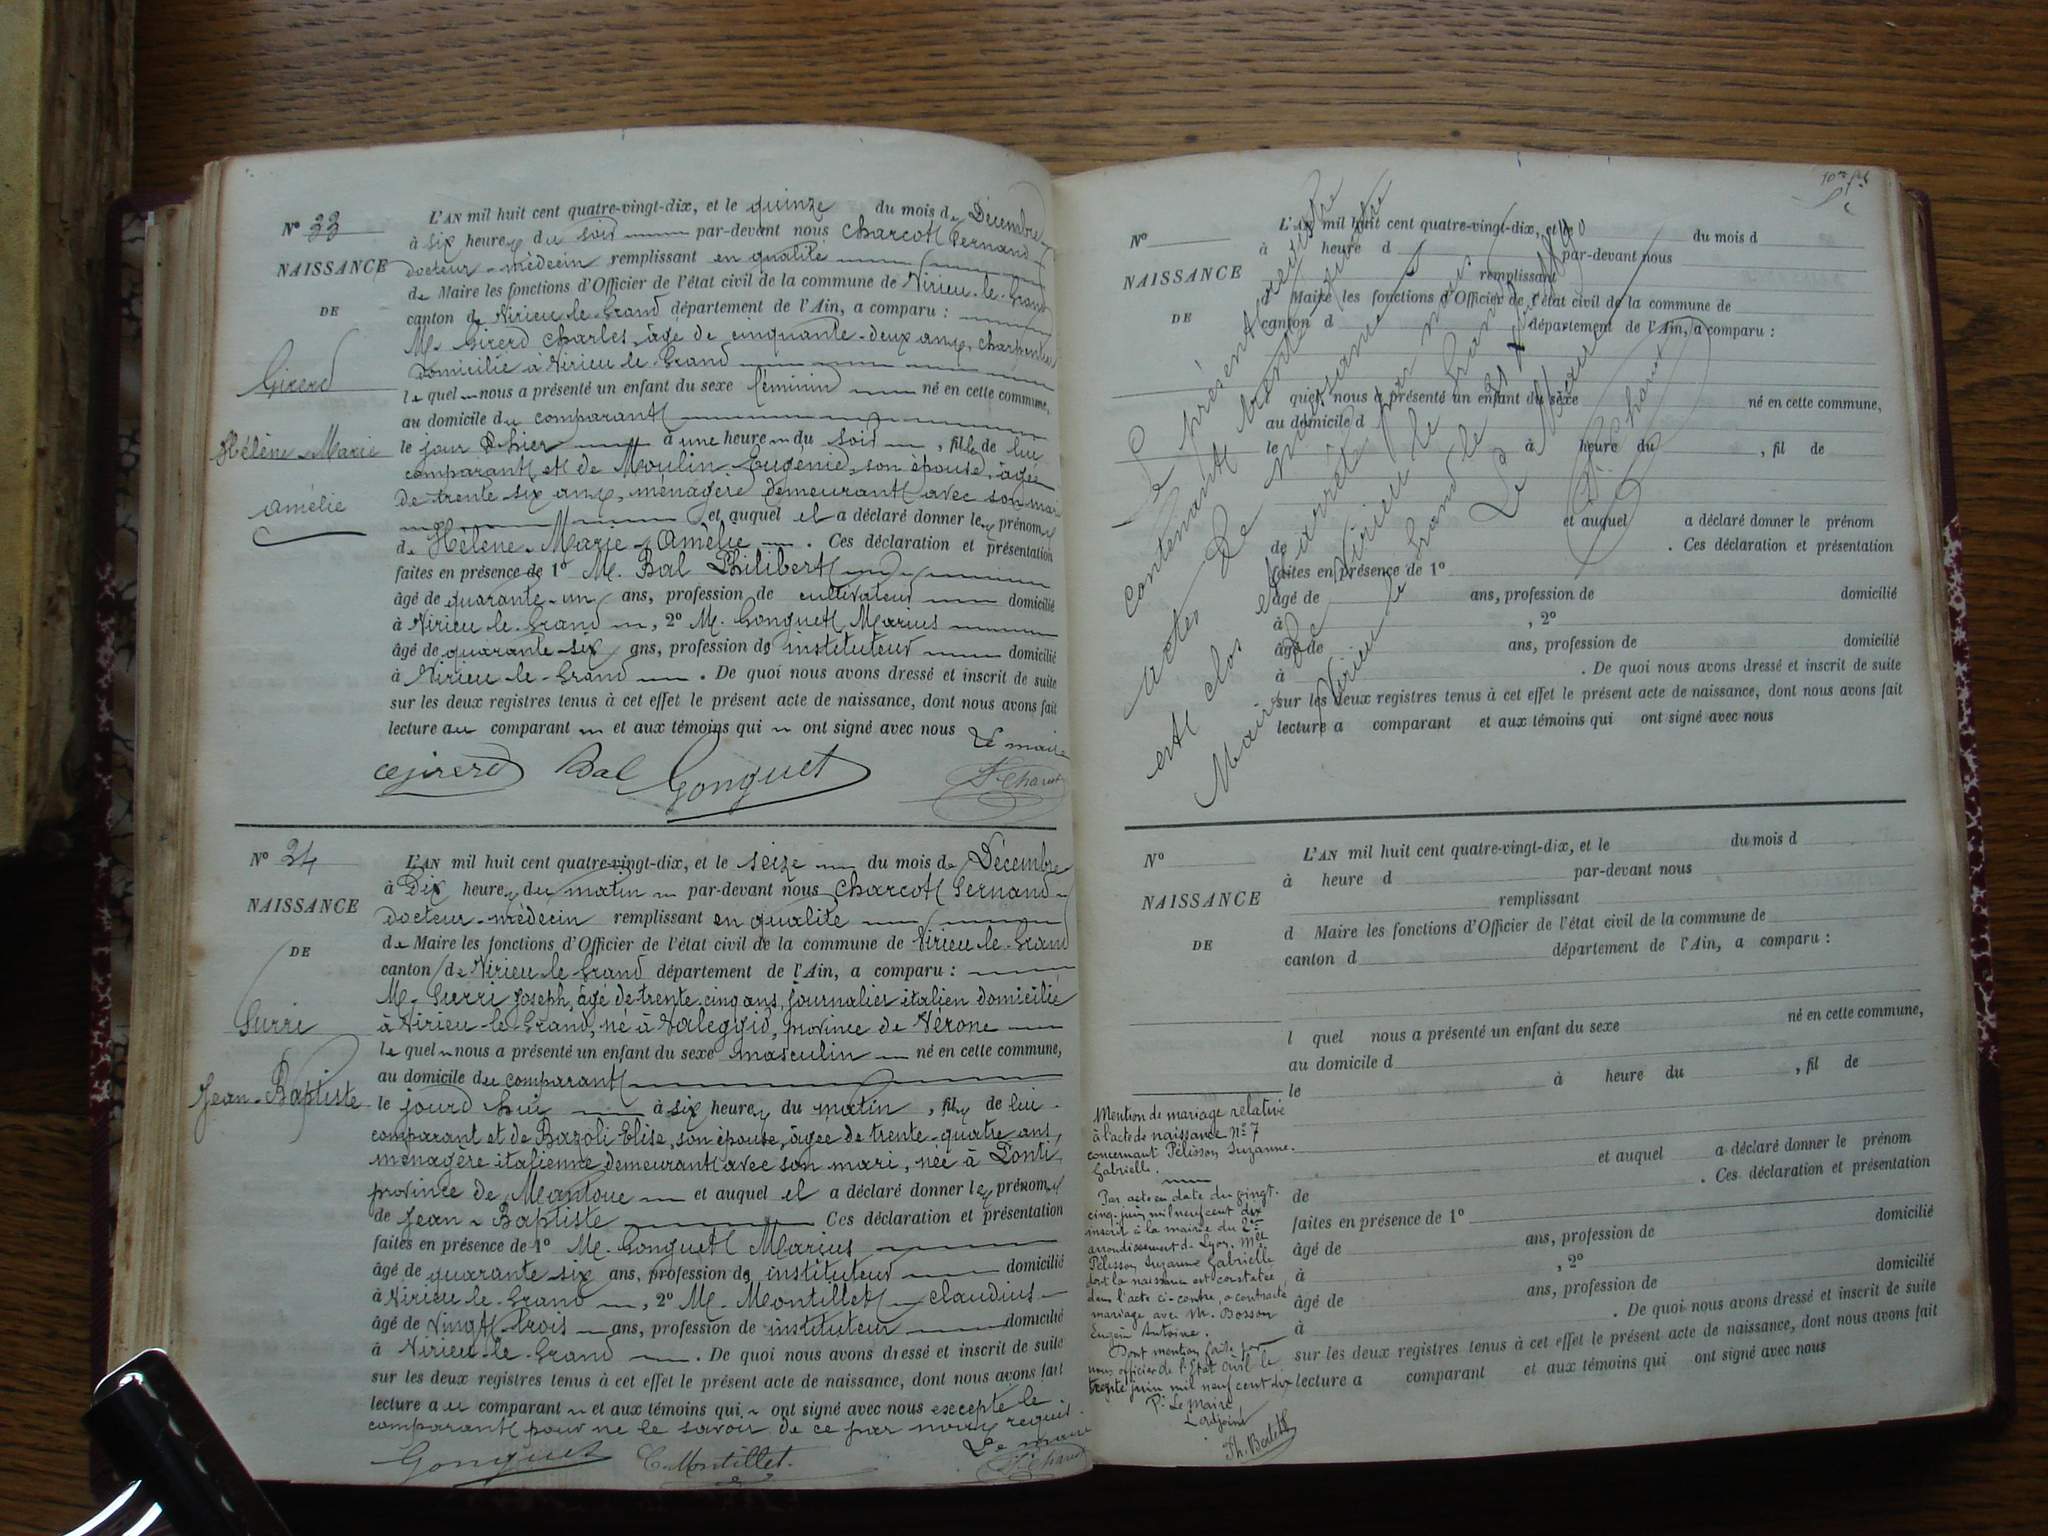 N° 33
NAISSANCE
DE
Girerd
Hélène-Marie
Amélie
L'AN mil huit cent quatre-vingt-dix, et le quinze du mois de Décembre
à six heures du soir par-devant nous Charcot Fernand
docteur-médecin remplissant en qualité
de Maire les fonctions d'Officier de l'état civil de la commune de Virieu-le-Grand
canton de Virieu-le-Grand département de l'Ain, a comparu :
M. Girerd Charles, âgé de cinquante-deux ans, charpentier
domicilié à Virieu-le-Grand
lequel nous a présenté un enfant du sexe féminin né en cette commune,
au domicile du comparant
le jour d'hier à une heure du soir, fille de lui
comparant et de Moulin Eugénie, son épouse, âgée
de trente-six ans, ménagère demeurant avec son mari
et auquel il a déclaré donner les prénoms
de Hélène-Marie-Amélie. Ces déclaration et présentation
faites en présence de 1° M. Bal Philibert
âgé de quarante-un ans, profession de cultivateur domicilié
à Virieu-le-Grand, 2° M. Gonguet Marius
âgé de quarante-six ans, profession de instituteur domicilié
à Virieu-le-Grand. De quoi nous avons dressé et inscrit de suite
sur les deux registres tenus à cet effet le présent acte de naissance, dont nous avons fait
lecture au comparant et aux témoins qui ont signé avec nous
Le maire
Girerd Bal Gonguet F. Charcot
N° 34
NAISSANCE
DE
Gurri
Jean-Baptiste
L'AN mil huit cent quatre-vingt-dix, et le seize du mois de Décembre
à Dix heures du matin par-devant nous Charcot Fernand
docteur-médecin remplissant en qualité
de Maire les fonctions d'Officier de l'état civil de la commune de Virieu-le-Grand
canton de Virieu-le-Grand département de l'Ain, a comparu :
M. Gurri Joseph, âgé de trente-cinq ans, journalier italien domicilié
à Virieu-le-Grand, né à Valeggio, province de Vérone
lequel nous a présenté un enfant du sexe masculin né en cette commune,
au domicile du comparant
le jourd'hui à six heures du matin, fils de lui
comparant et de Bazoli Elise, son épouse, âgée de trente-quatre ans,
ménagère italienne demeurant avec son mari, née à Ponti
province de Mantoue et auquel il a déclaré donner les prénoms
de Jean-Baptiste Ces déclaration et présentation
faites en présence de 1° M. Gonguet Marius
âgé de quarante-six ans, profession de instituteur domicilié
à Virieu-le-Grand, 2° M. Montillet Claudius
âgé de Vingt-trois ans, profession de instituteur domicilié
à Virieu-le-Grand. De quoi nous avons dressé et inscrit de suite
sur les deux registres tenus à cet effet le présent acte de naissance, dont nous avons fait
lecture au comparant et aux témoins qui ont signé avec nous excepté le
comparant pour ne le savoir de ce par nous requis.
Le maire
Gonguet C. Montillet. F. Charcot
N°
NAISSANCE
DE
L'AN mil huit cent quatre-vingt-dix, et le du mois d
à heure d par-devant nous
remplissant
d Maire les fonctions d'Officier de l'état civil de la commune de
canton d département de l'Ain, a comparu :
quel nous a présenté un enfant du sexe né en cette commune,
au domicile d
le à heure du , fil de
et auquel a déclaré donner le prénom
de . Ces déclaration et présentation
faites en présence de 1°
âgé de ans, profession de domicilié
à , 2°
âgé de ans, profession de domicilié
à . De quoi nous avons dressé et inscrit de suite
sur les deux registres tenus à cet effet le présent acte de naissance, dont nous avons fait
lecture a comparant et aux témoins qui ont signé avec nous
Le présent registre
contenant trente-quatre
actes de naissances
est clos et arrêté par nous
Maire de Virieu-le-Grand
Virieu-le-Grand le 31 Xbre 1890
Le Maire
F. Charcot
N°
NAISSANCE
DE
L'AN mil huit cent quatre-vingt-dix, et le du mois d
à heure d par-devant nous
remplissant
d Maire les fonctions d'Officier de l'état civil de la commune de
canton d département de l'Ain, a comparu :
l quel nous a présenté un enfant du sexe né en cette commune,
au domicile d
le à heure du , fil de
et auquel a déclaré donner le prénom
de . Ces déclaration et présentation
faites en présence de 1°
âgé de ans, profession de domicilié
à , 2°
âgé de ans, profession de domicilié
à . De quoi nous avons dressé et inscrit de suite
sur les deux registres tenus à cet effet le présent acte de naissance, dont nous avons fait
lecture a comparant et aux témoins qui ont signé avec nous
Mention de mariage relative
à l'acte de naissance N° 7
concernant Pélisson Suzanne
Gabrielle.
Par acte en date du vingt-
cinq juin mil neuf cent dix
inscrit à la mairie du 2me
arrondissement de Lyon, Melle
Pélisson Suzanne Gabrielle
dont la naissance est constatée
dans l'acte ci-contre, a contracté
mariage avec M. Bosson
Eugène Antoine.
Dont mention faite par
nous officier de l'Etat civil le
trente juin mil neuf cent dix
Pr Le Maire
L'adjoint